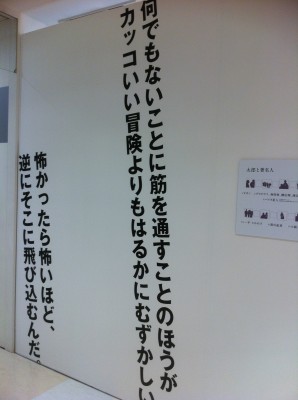 何でもないことに筋を通すことのほうが
カッコいい冒険よりもはるかにむずかしい
怖かったら怖いほど、
逆にそこに飛び込むんだ。